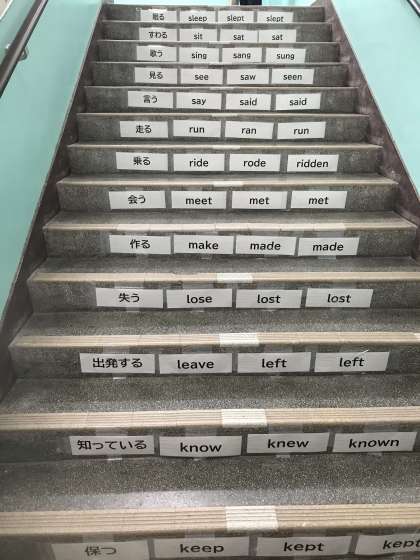 眠る sleep slept slept
すわる sit sat sat
歌う sing sang sung
見る see saw seen
言う say said said
走る run ran run
乗る ride rode ridden
会う meet met met
作る make made made
失う lose lost lost
出発する leave left left
知っている know knew known
保つ keep kept kept